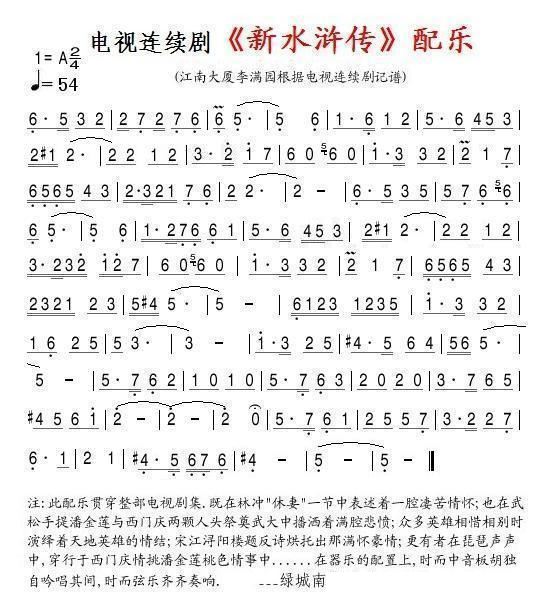 电视连续剧《新水浒传》配乐
1=A2/4
♩=54
(江南大厦李满园根据电视连续剧记谱)
6· 5 3 2 | 2 7 2 7 6 | 6 5· | 5 - | 1· 6 1 2 | 5· 6 4 5 3 |
2#1 2· | 2 2 1 2 | 3· 2 1 7 | 6 0 5 6 0 | 1· 3 3 2 | 2 1 7 |
6565 4 3 | 2·321 7 6 | 2 2· | 2 - | 6· 5 3 5 | 5 7 6 5 6 |
6 5· | 5 6 | 1·276 6 1 | 5· 6 4 5 3 | 2#1 2· | 2 - |
3·232 1 2 7 | 6 0 5 6 0 | 1· 3 3 2 | 2 1 7 | 6565 4 3 |
2321 2 1 | 5#4 5· | 5 - | 6123 1235 | 1· 6 1 2 |
1 6 2 5 | 5 3· | 3 - | 2· 1 2 5 | #5· 6 6 4 | 5 6 5· |
5 - | 5· 7 6 2 | 1 0 1 0 | 5· 7 6 2 | 2 0 2 0 | 3· 7 2 3 |
#4 5 6 1 | 2 - | 2 - | 2 0 | 5· 7 6 1 | 2 5 5 7 | 3· 2 3 5 |
6· 1 | 2 2 1 | #4· 5 6 7 6 | #4 - | 5 - | 5 - ‖
注: 此配乐贯穿整部电视剧集. 既在林冲"休妻"一节中表述着一腔凄苦情怀; 也在武
松手提潘金莲与西门庆两颗人头祭奠武大中播洒着满腔悲愤; 众多英雄相惜相别时
演绎着天地英雄的情结; 宋江浔阳楼题反诗烘托出那满怀豪情; 更有者在琵琶声声
中, 穿行于西门庆情挑潘金莲桃色情事中......在器乐的配置上, 时而中音板胡独
自吟唱其间, 时而弦乐齐齐奏响. ---绿城南